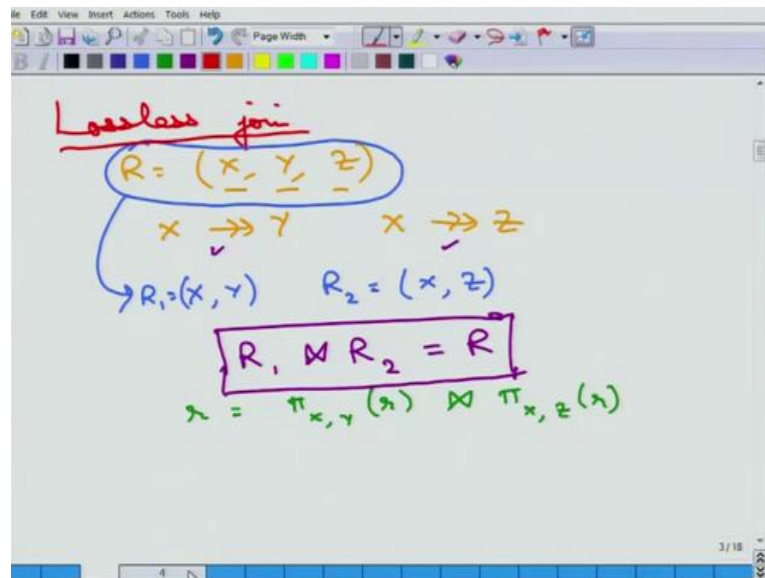 File Edit View Insert Actions Tools Help
Page Width
B I
Lossless join
R = (X, Y, Z)
X ↠ Y X ↠ Z
R₁=(X, Y) R₂ = (X, Z)
R₁ ⋈ R₂ = R
r = π_{X, Y}(r) ⋈ π_{X, Z}(r)
3/18
4